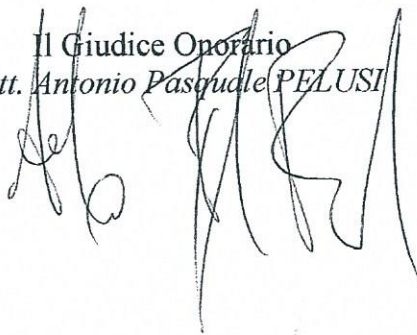 Il Giudice Onorario
tt. Antonio Pasquale PELUSI